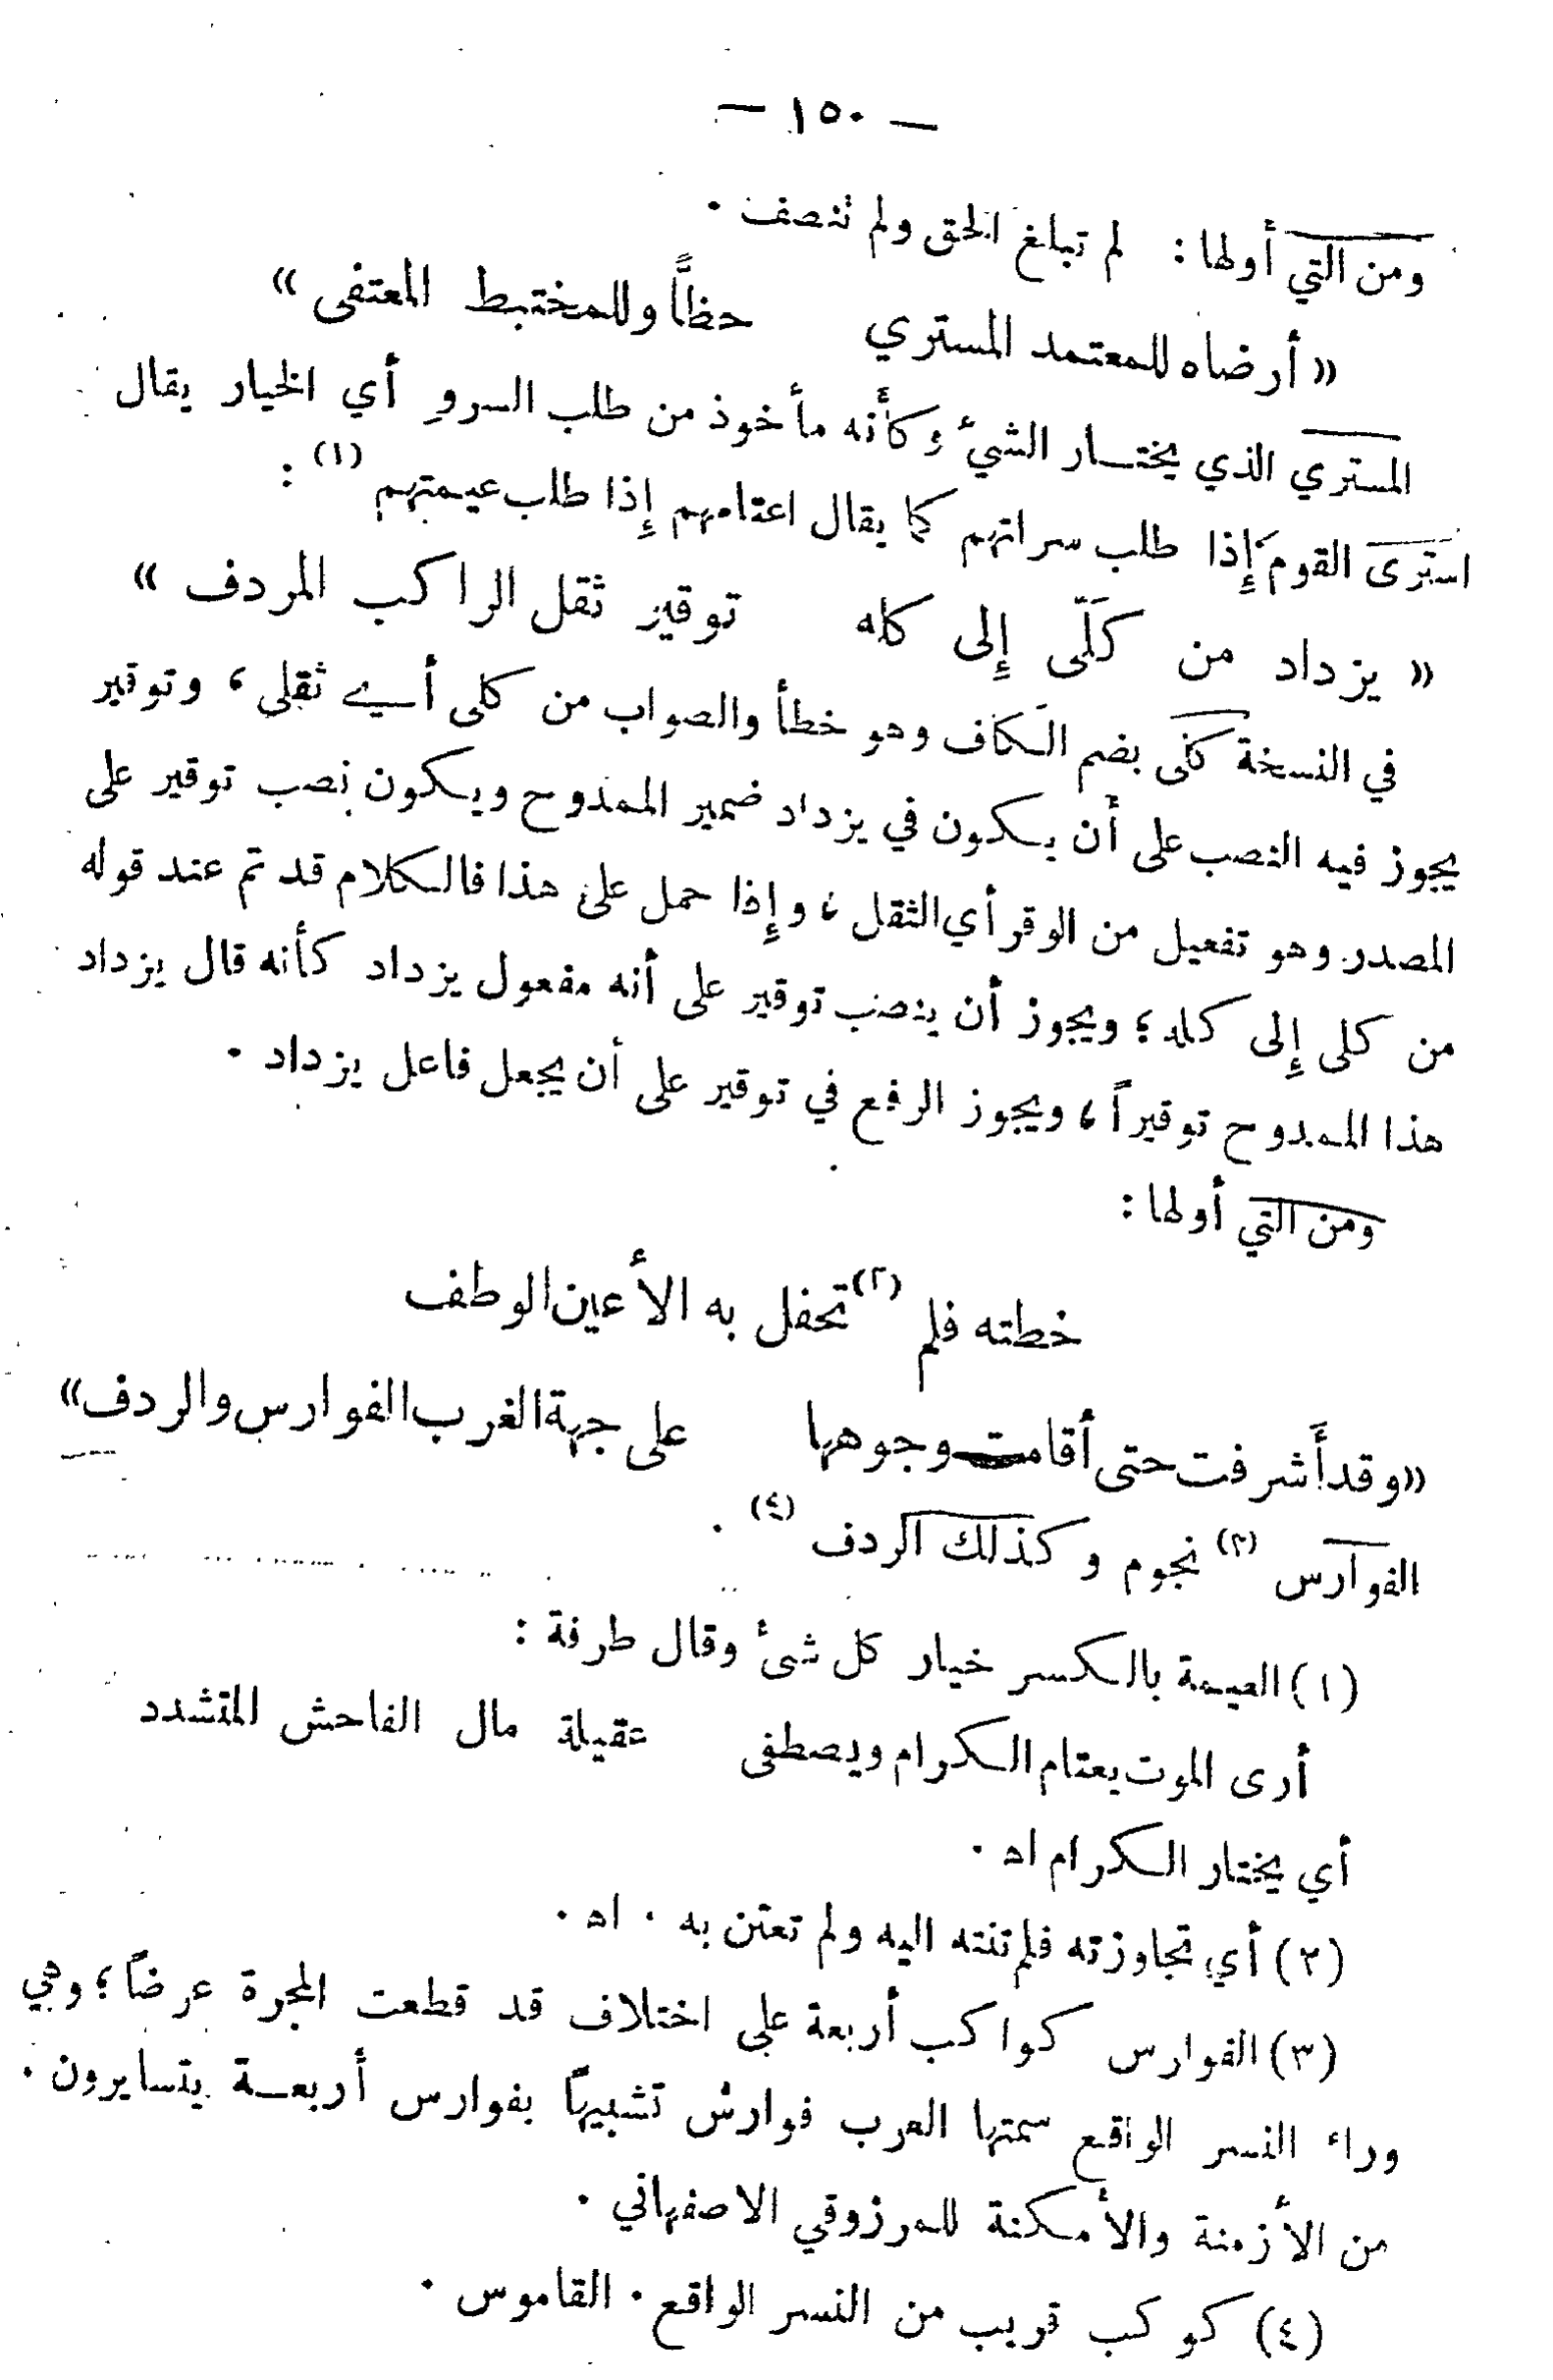 — ١٥٠ —
ومن التي أولها : لم تبلغ الحق ولم تنصف .
« أرضاه للمعتمد المستري حظاً وللمختبط المعتفى »
المستري الذي يختار الشيء وكأنه مأخوذ من طلب السرو أي الخيار يقال
استرى القومَ إذا طلب سراتهم كما يقال اعتامهم إذا طلب عيمتهم (١) :
« يزداد من كَلّى إلى كله توقير ثقل الراكب المردف »
في النسخة كلى بضم الكاف وهو خطأ والصواب من كلى أي ثقلي ، وتوقير
يجوز فيه النصب على أن يكون في يزداد ضمير الممدوح ويكون نصب توقير على
المصدر وهو تفعيل من الوقر أي الثقل ، وإذا حمل على هذا فالكلام قد تم عند قوله
من كلى إلى كله ؛ ويجوز أن ينصب توقير على أنه مفعول يزداد كأنه قال يزداد
هذا الممدوح توقيراً ، ويجوز الرفع في توقير على أن يجعل فاعل يزداد .
ومن التي أولها :
خطته فلم (٢) تحفل به الأعين الوطف
« وقد أشرفت حتى أقامت وجوهها على جهة الغرب الفوارس والردف »
الفوارس (٣) نجوم وكذلك الردف (٤) .
(١) العيمة بالكسر خيار كل شئ وقال طرفة :
أرى الموت يعتام الكرام ويصطفى عقيلة مال الفاحش المتشدد
أي يختار الكرام اه .
(٢) أي تجاوزته فلم تنته اليه ولم تعتن به . اه .
(٣) الفوارس كواكب أربعة على اختلاف قد قطعت المجرة عرضاً ؛ وهي
وراء النسر الواقع سمتها العرب فوارس تشبيهاً بفوارس أربعة يتسايرون .
من الأزمنة والأمكنة للمرزوقي الاصفهاني .
(٤) كوكب قريب من النسر الواقع . القاموس .